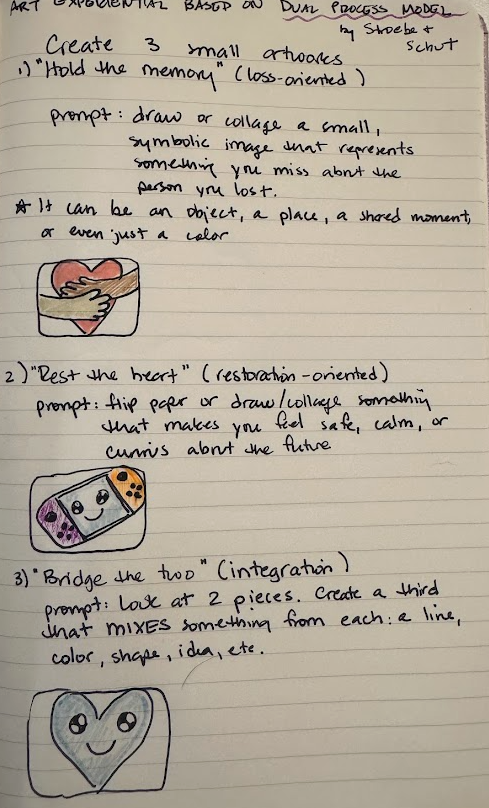 ART EXPERIENTIAL BASED ON DUAL PROCESS MODEL
by Stroebe +
Schut
Create 3 small artworks
1) "Hold the memory" (loss-oriented)
prompt: draw or collage a small,
symbolic image that represents
something you miss about the
person you lost.
☆ It can be an object, a place, a shared moment,
or even just a color
2) "Rest the heart" (restoration-oriented)
prompt: flip paper or draw/collage something
that makes you feel safe, calm, or
curious about the future
3) "Bridge the two" (integration)
prompt: Look at 2 pieces. Create a third
that MIXES something from each: a line,
color, shape, idea, etc.